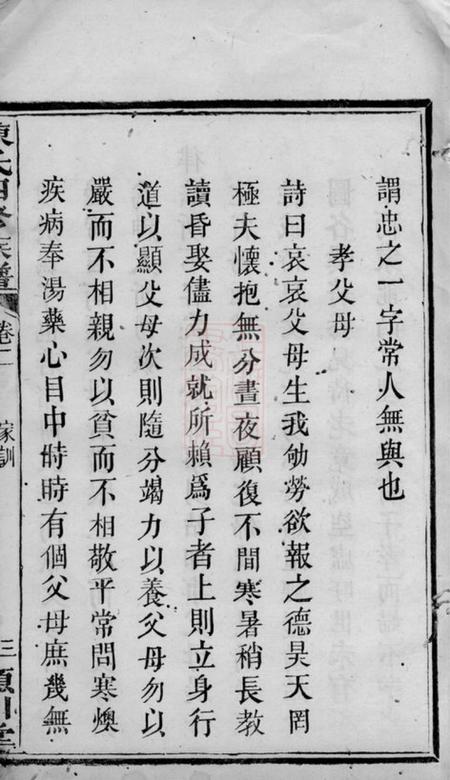 謂忠之一字常人無與也
孝父母
詩曰哀哀父母生我劬勞欲報之德昊天罔
極夫懷抱無分晝夜顧復不間寒暑稍長教
讀昏娶儘力成就所賴爲子者上則立身行
道以顯父母次則隨分竭力以養父母勿以
嚴而不相親勿以貧而不相敬平常問寒燠
疾病奉湯藥心目中時時有個父母庶幾無
氏
修族譜
卷二
家訓
三
川堂